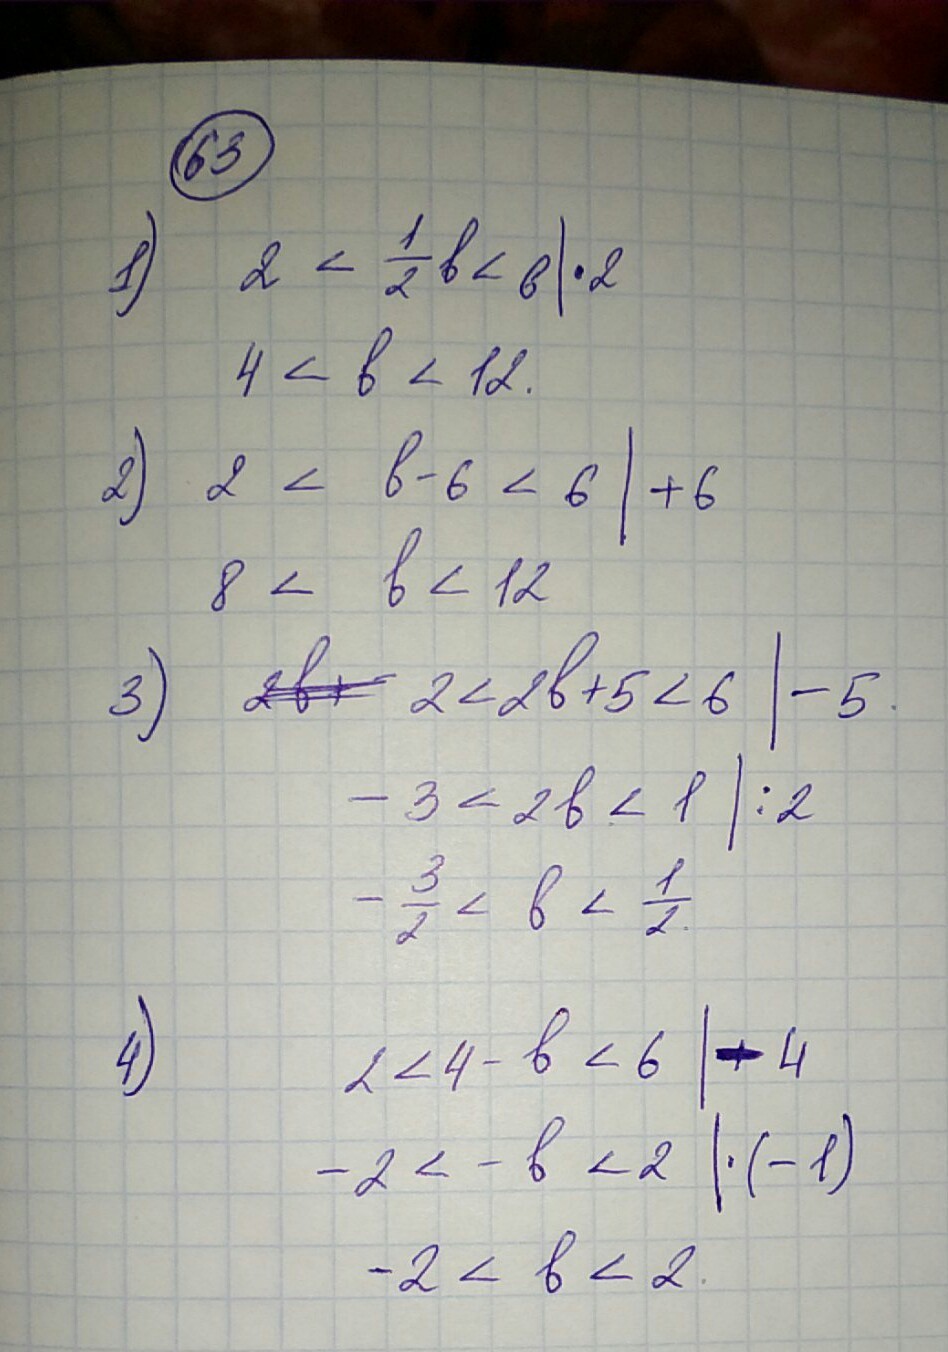 63
1) 2 < 1/2 в < 6 | · 2
4 < в < 12.
2) 2 < в - 6 < 6 | + 6
8 < в < 12
3) 2в+ 2 < 2в + 5 < 6 | - 5.
- 3 < 2в < 1 | : 2
- 3/2 < в < 1/2.
4) 2 < 4 - в < 6 | - 4
- 2 < - в < 2 | · (- 1)
- 2 < в < 2.